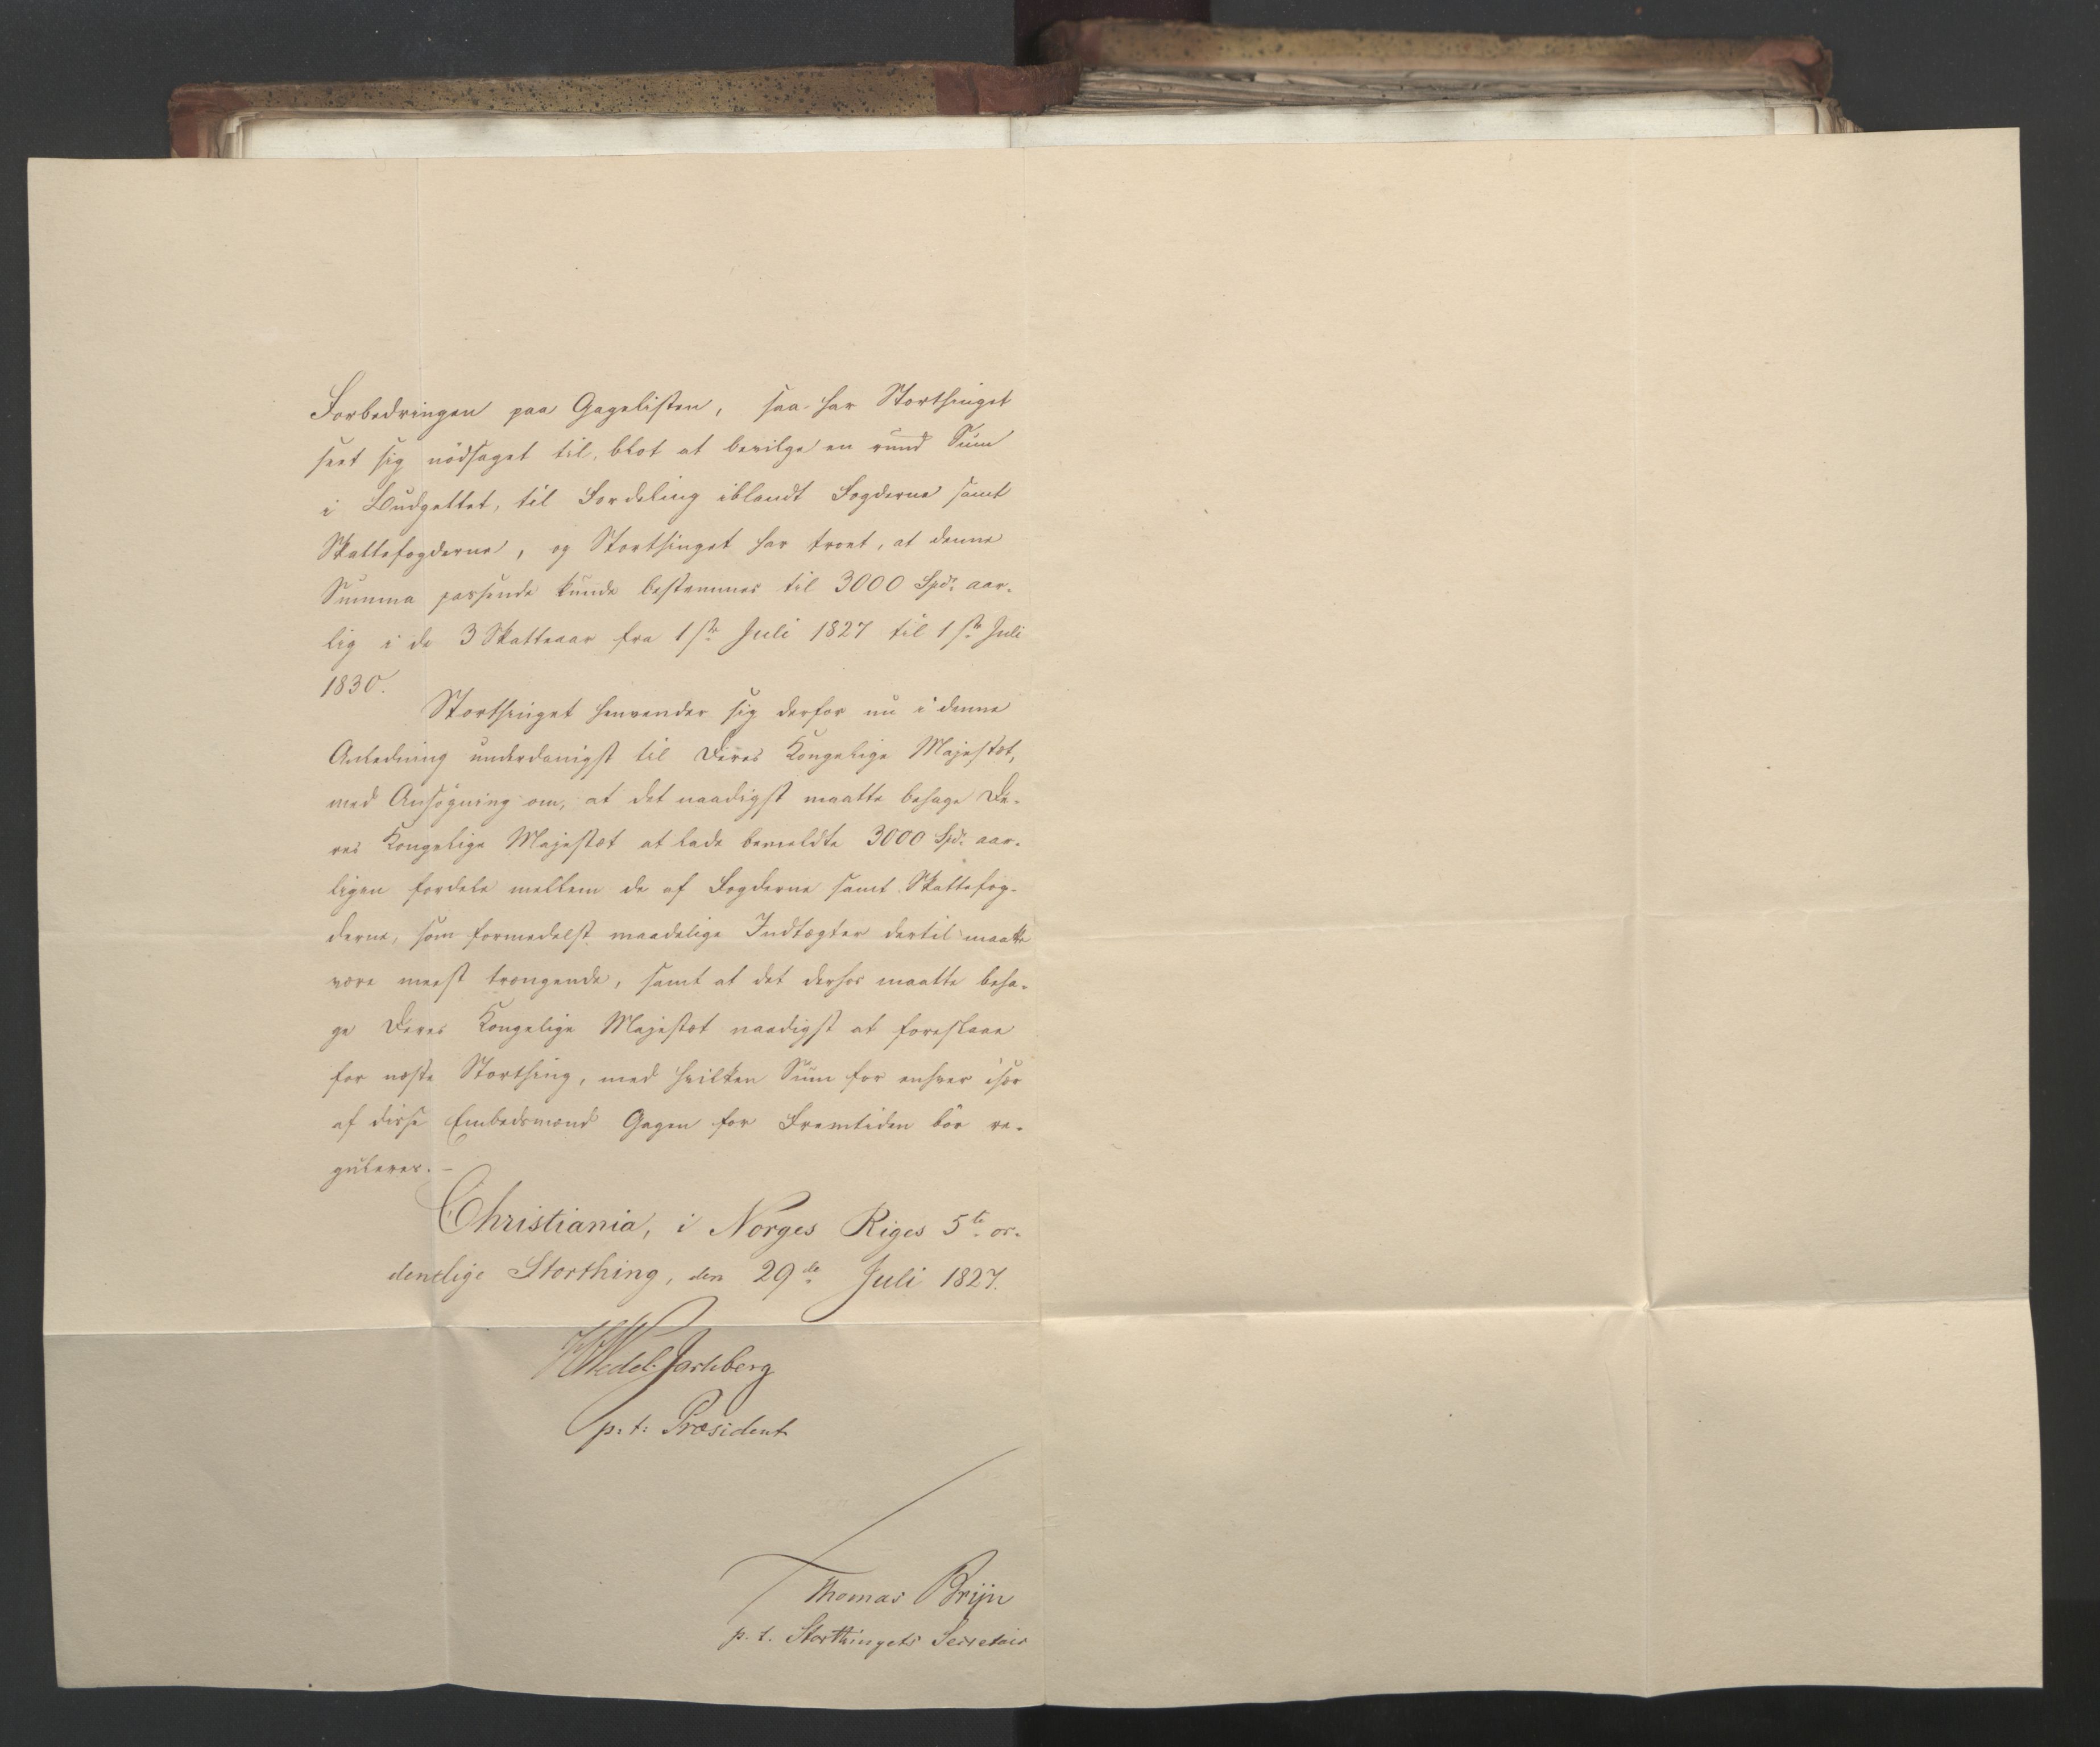 Forbedringen paa Gagelisten, saa har Storthinget
seet sig nödsaget til, blot at bevilge en rund Sum
i Budgettet, til Fordeling iblandt Fogderne samt
Skattefogderne, og Storthinget har troet, at denne
Summa passende kunde bestemmes til 3000 Spd. aar-
lig i de 3 Skatteaar fra 1ste Juli 1827 til 1ste Juli
1830.
Storthinget henvender sig derfor nu i denne
Anledning underdanigst til Deres Kongelige Majestæt,
med Ansögning om, at det naadigst maatte behage De-
res Kongelige Majestæt at lade bemeldte 3000 Spd. aar-
ligen fordele mellem de af Fogderne samt Skattefog-
derne, som formedelst maadelige Indtægter dertil maatte
være meest trængende, samt at det derhos maatte beha-
ge Deres Kongelige Majestæt naadigst at foreslaae
for næste Storthing, med hvilken Sum for enhver især
af disse Embedsmænd Gagen for Fremtiden bör re-
guleres. –
Christiania, i Norges Riges 5te or-
dentlige Storthing, den 29de Juli 1827.
HWedel Jarlsberg
p. t. Præsident
Thomas Bryn
p. t. Storthingets Secretair